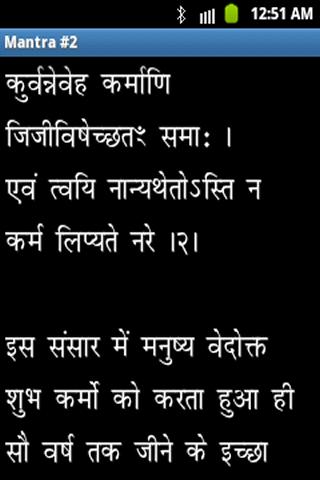 12:51 AM
Mantra #2
कुर्वन्नेवेह कर्माणि
जिजीविषेच्छतꣳ समाः ।
एवं त्वयि नान्यथेतोऽस्ति न
कर्म लिप्यते नरे ।२।
इस संसार में मनुष्य वेदोक्त
शुभ कर्मो को करता हुआ ही
सौ वर्ष तक जीने के इच्छा